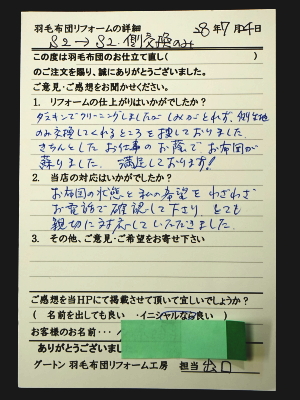 羽毛布団リフォームの詳細 28年7月4日
S2→S2.側交換のみ
この度は羽毛布団のお仕立て直し(
)のご注文を賜り、誠にありがとうございました。
ご意見・ご感想をお聞かせください。
1. リフォームの仕上がりはいかがでしたか？
ダスキンでクリーニングしましたが しみがとれず、側生地
のみ交換してくれるところを捜しておりました。
きちんとしたお仕事のお蔭で お布団が
蘇りました。満足しております!
2. 当店の対応はいかがでしたか？
お布団の状態と私の希望を わざわざ
お電話で確認して下さり、とても
親切に対応していただきました。
3. その他、ご意見・ご希望をお寄せ下さい
ご感想を当HPにて掲載させて頂いて宜しいでしょうか？
( 名前を出しても良い ・イニシャルなら良い )
お客様のお名前・・・
ありがとうございまし
グートン 羽毛布団リフォーム工房 担当 出口